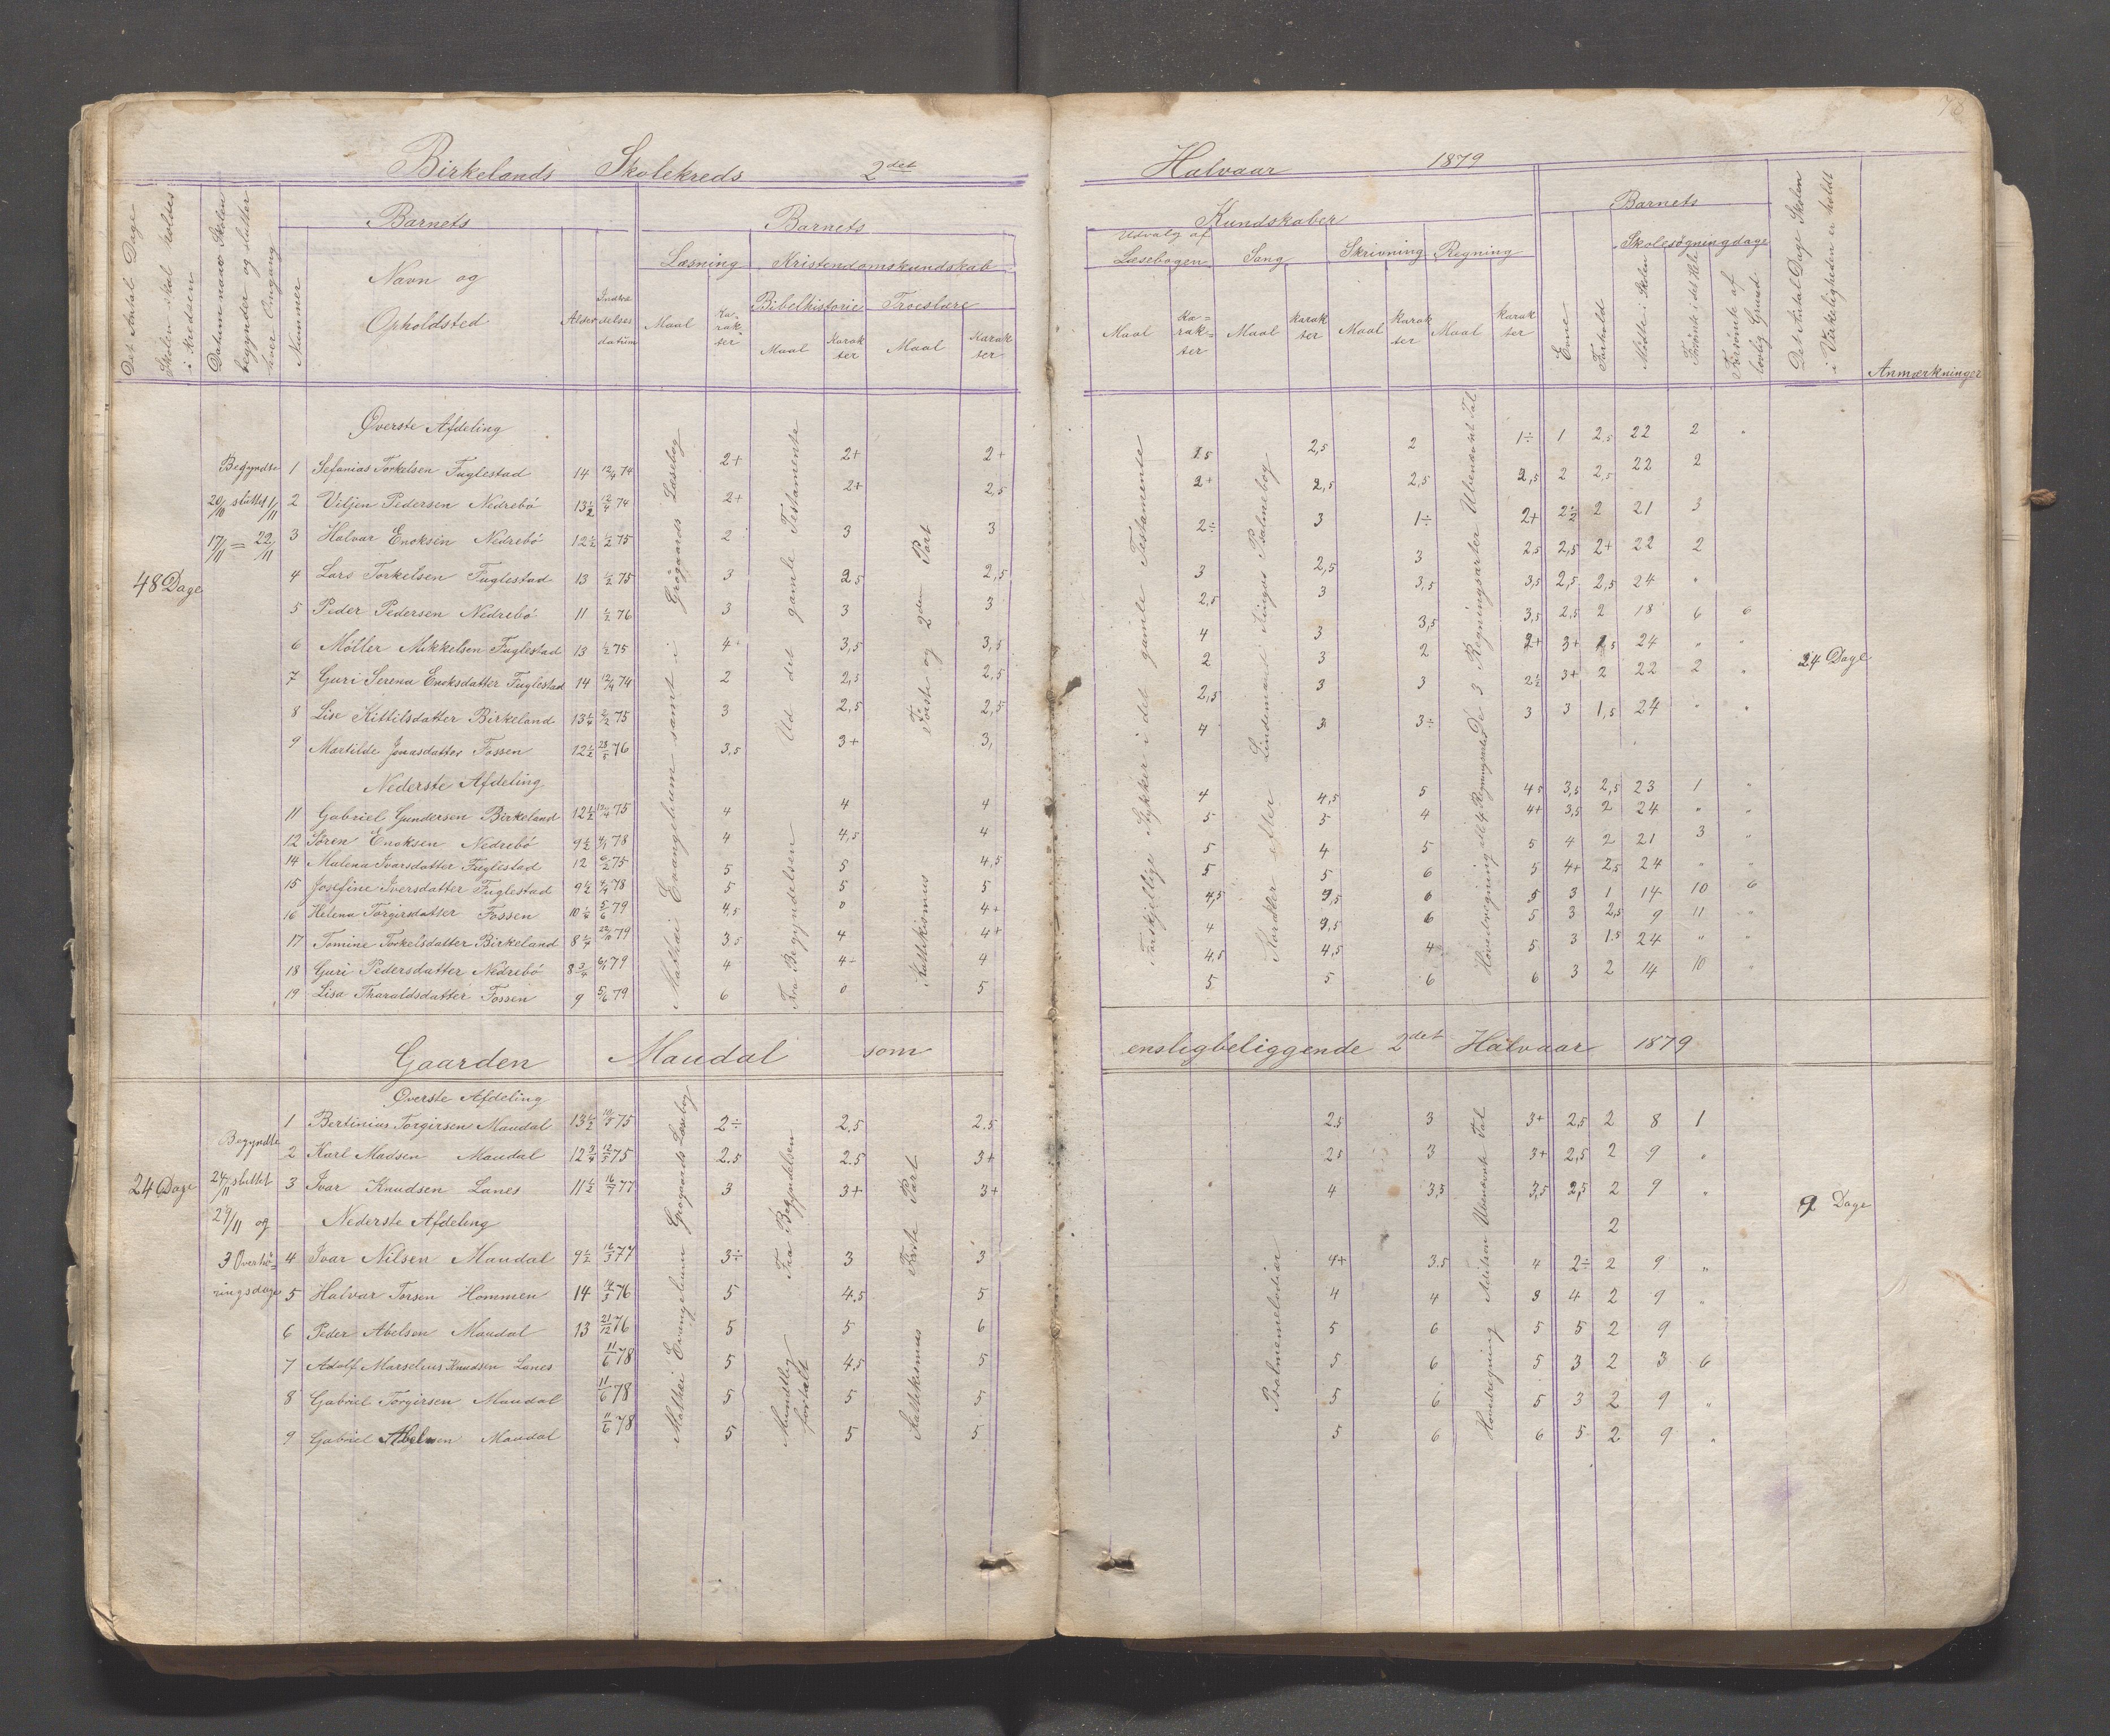 78
Birkelands Skolekreds 2det Halvaar 1879
Det Antal Dage Skolen skal holdes i Kredsen
Datum naar Skolen begynder og slutter hver Omgang
Nummer
Barnets
Navn og Opholdsted
Alder
Indtrædelses datum
Barnets Kundskaber
Læsning
Maal
Karakter
Kristendomskundskab
Bibelhistorie
Maal
Karakter
Troeslære
Maal
Karakter
Udvalg af Læsebogen
Maal
Karakter
Sang
Maal
Karakter
Skrivning
Maal
Karakter
Regning
Maal
Karakter
Barnets
Evne
Forhold
Skolesøgningdage
Mødte i Skolen
Forsømte i det Hele
Forsømte af lovlig Grund
Det Antal Dage Skolen i Virkeligheden er holdt
Anmærkninger
Øverste Afdeling
48 Dage
Begyndte 20/10 sluttet 1/11
17/11 = 22/11
1 Sefanias Torkelsen Fuglestad 14 12/4 74 2+ 2+ 2+ 1.5 2,5 2 1÷ 1 2,5 22 2 "
2 Viljen Pedersen Nedrebö 13½ 12/4 74 2+ 2+ 2,5 2+ 2,5 2,5 2,5 2 2,5 22 2
3 Halvar Enoksen Nedrebö 12½ ½ 75 2 3 3 2÷ 3 1÷ 2+ 2½ 2 21 3
4 Lars Torkelsen Fuglestad 13 ½ 75 3 2,5 2,5 3 2,5 3 2,5 2,5 2+ 22 2
5 Peder Pedersen Nedrebö 11 ½ 76 3 3 3 2,5 3 3,5 3,5 2,5 2,5 24 "
6 Möller Mikkelsen Fuglestad 13 ½ 75 4 3,5 3,5 4 3 3,5 3,5 2,5 2 18 6 6
7 Guri Serena Enoksdatter Fuglestad 14 12/4 74 2 2,5 2,5 2 3 2 2+ 3+ 1,5 24 " "
8 Lise Kittilsdatter Birkeland 13¼ 2/2 75 3 2,5 2,5 2,5 3 3 2½ 3+ 2 22 2 "
9 Martilde Jonasdatter Fossen 12½ 28/5 76 3,5 3+ 3, 4 3 3÷ 3 3 1,5 24 " "
24 Dage
Nederste Afdeling
11 Gabriel Gundersen Birkeland 12½ 12/4 75 4 4 4 4 4,5 5 4,5 3,5 2,5 23 1 "
12 Sören Enoksen Nedrebö 9½ 4/1 78 4 4,5 4 5 5 4 4+ 3,5 2 24 " "
14 Malena Ivarsdatter Fuglestad 12 6/2 75 5 5 4,5 5 4 5 5 4 2 21 3 "
15 Josefine Iversdatter Fuglestad 9½ 4/9 78 5 5 5 5 5 6 5 4+ 2,5 24 " "
16 Helena Torgirsdatter Fossen 10½ 5/6 79 4,5 0 4+ 4,5 3,5 6 5 3 1 14 10 6
17 Tomine Torkelsdatter Birkeland 8¼ 22/11 79 3,5 4 4+ 4 3,5 6 5 3 2,5 9 11 "
18 Guri Pedersdatter Nedrebö 8¾ 6/1 79 4 4- 4 4,5 4,5 4 5 3 1.5 24 " "
19 Lisa Tharaldsdatter Fossen 9 5/6 79 6 0 5 5 5 6 6 3 2 14 10 "
Mathæi Evangelium samt i Grögaards Læsebog
Fra Begyndelsen Ud det gamle Testamente
Katekismus Förste og 2den Part
Forskjellige Stykker i det gamle Testamente
Koraller efter Lindemanns Kingos Psalmebog
Hovedregning de 4 Regningsarter De 3 Regningsarter Ubenævnt Tal
Gaarden Maudal som ensligbeliggende 2det Halvaar 1879
Øverste Afdeling
24 Dage
Begyndte 24/11 sluttet 29/11 og 3 Overhøringsdage
1 Bertinius Torgirsen Maudal 13½ 10/5 75 2÷ 2,5 2.5 2.5 3 3+ 2,5 2 8 1
2 Karl Madsen Maudal 12¾ 12/3 75 2.5 2.5 3+ 2.5 3 3+ 2,5 2 9 "
3 Ivar Knudsen Lanes 11½ 16/7 77 3 3+ 3+ 4 3,5 3,5 2,5 2 9 "
9 Dage
Nederste Afdeling 2
4 Ivar Nilsen Maudal 9½ 16/3 77 3÷ 3 3 4+ 3.5 4 2÷ 2 9 "
5 Halvar Torsen Hommen 14 14/3 76 5 4,5 5 4 4 3 4 2 9 "
6 Peder Abelsen Maudal 13 21/12 76 5 5 6 5 6 5 5 2 9
7 Adolf Marselius Knudsen Lanes 11/6 78 5 4,5 5 5 6 5 3 2 3 6
8 Gabriel Torgirsen Maudal 11/6 78 5 5 5 5 6 5 3 2 9 "
9 Gabriel Abelsen Maudal 11/6 78 5 5 5 5 6 6 5 2 9 "
Mathæi Evangelium Grögaards Læsebog
Mundtlig fortalt Fra Begyndelsen
Katekismus Förste Part
Psalmemelodier
Hovedregning Adition Ubenævnte Tal